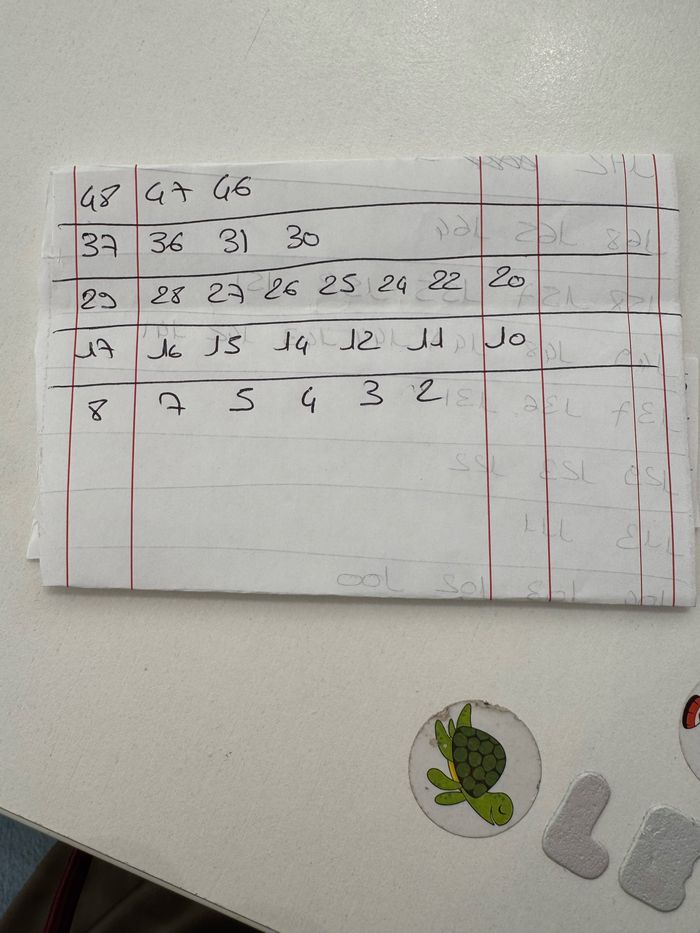 48 47 46
37 36 31 30
29 28 27 26 25 24 22 20
17 16 15 14 12 11 10
8 7 5 4 3 2